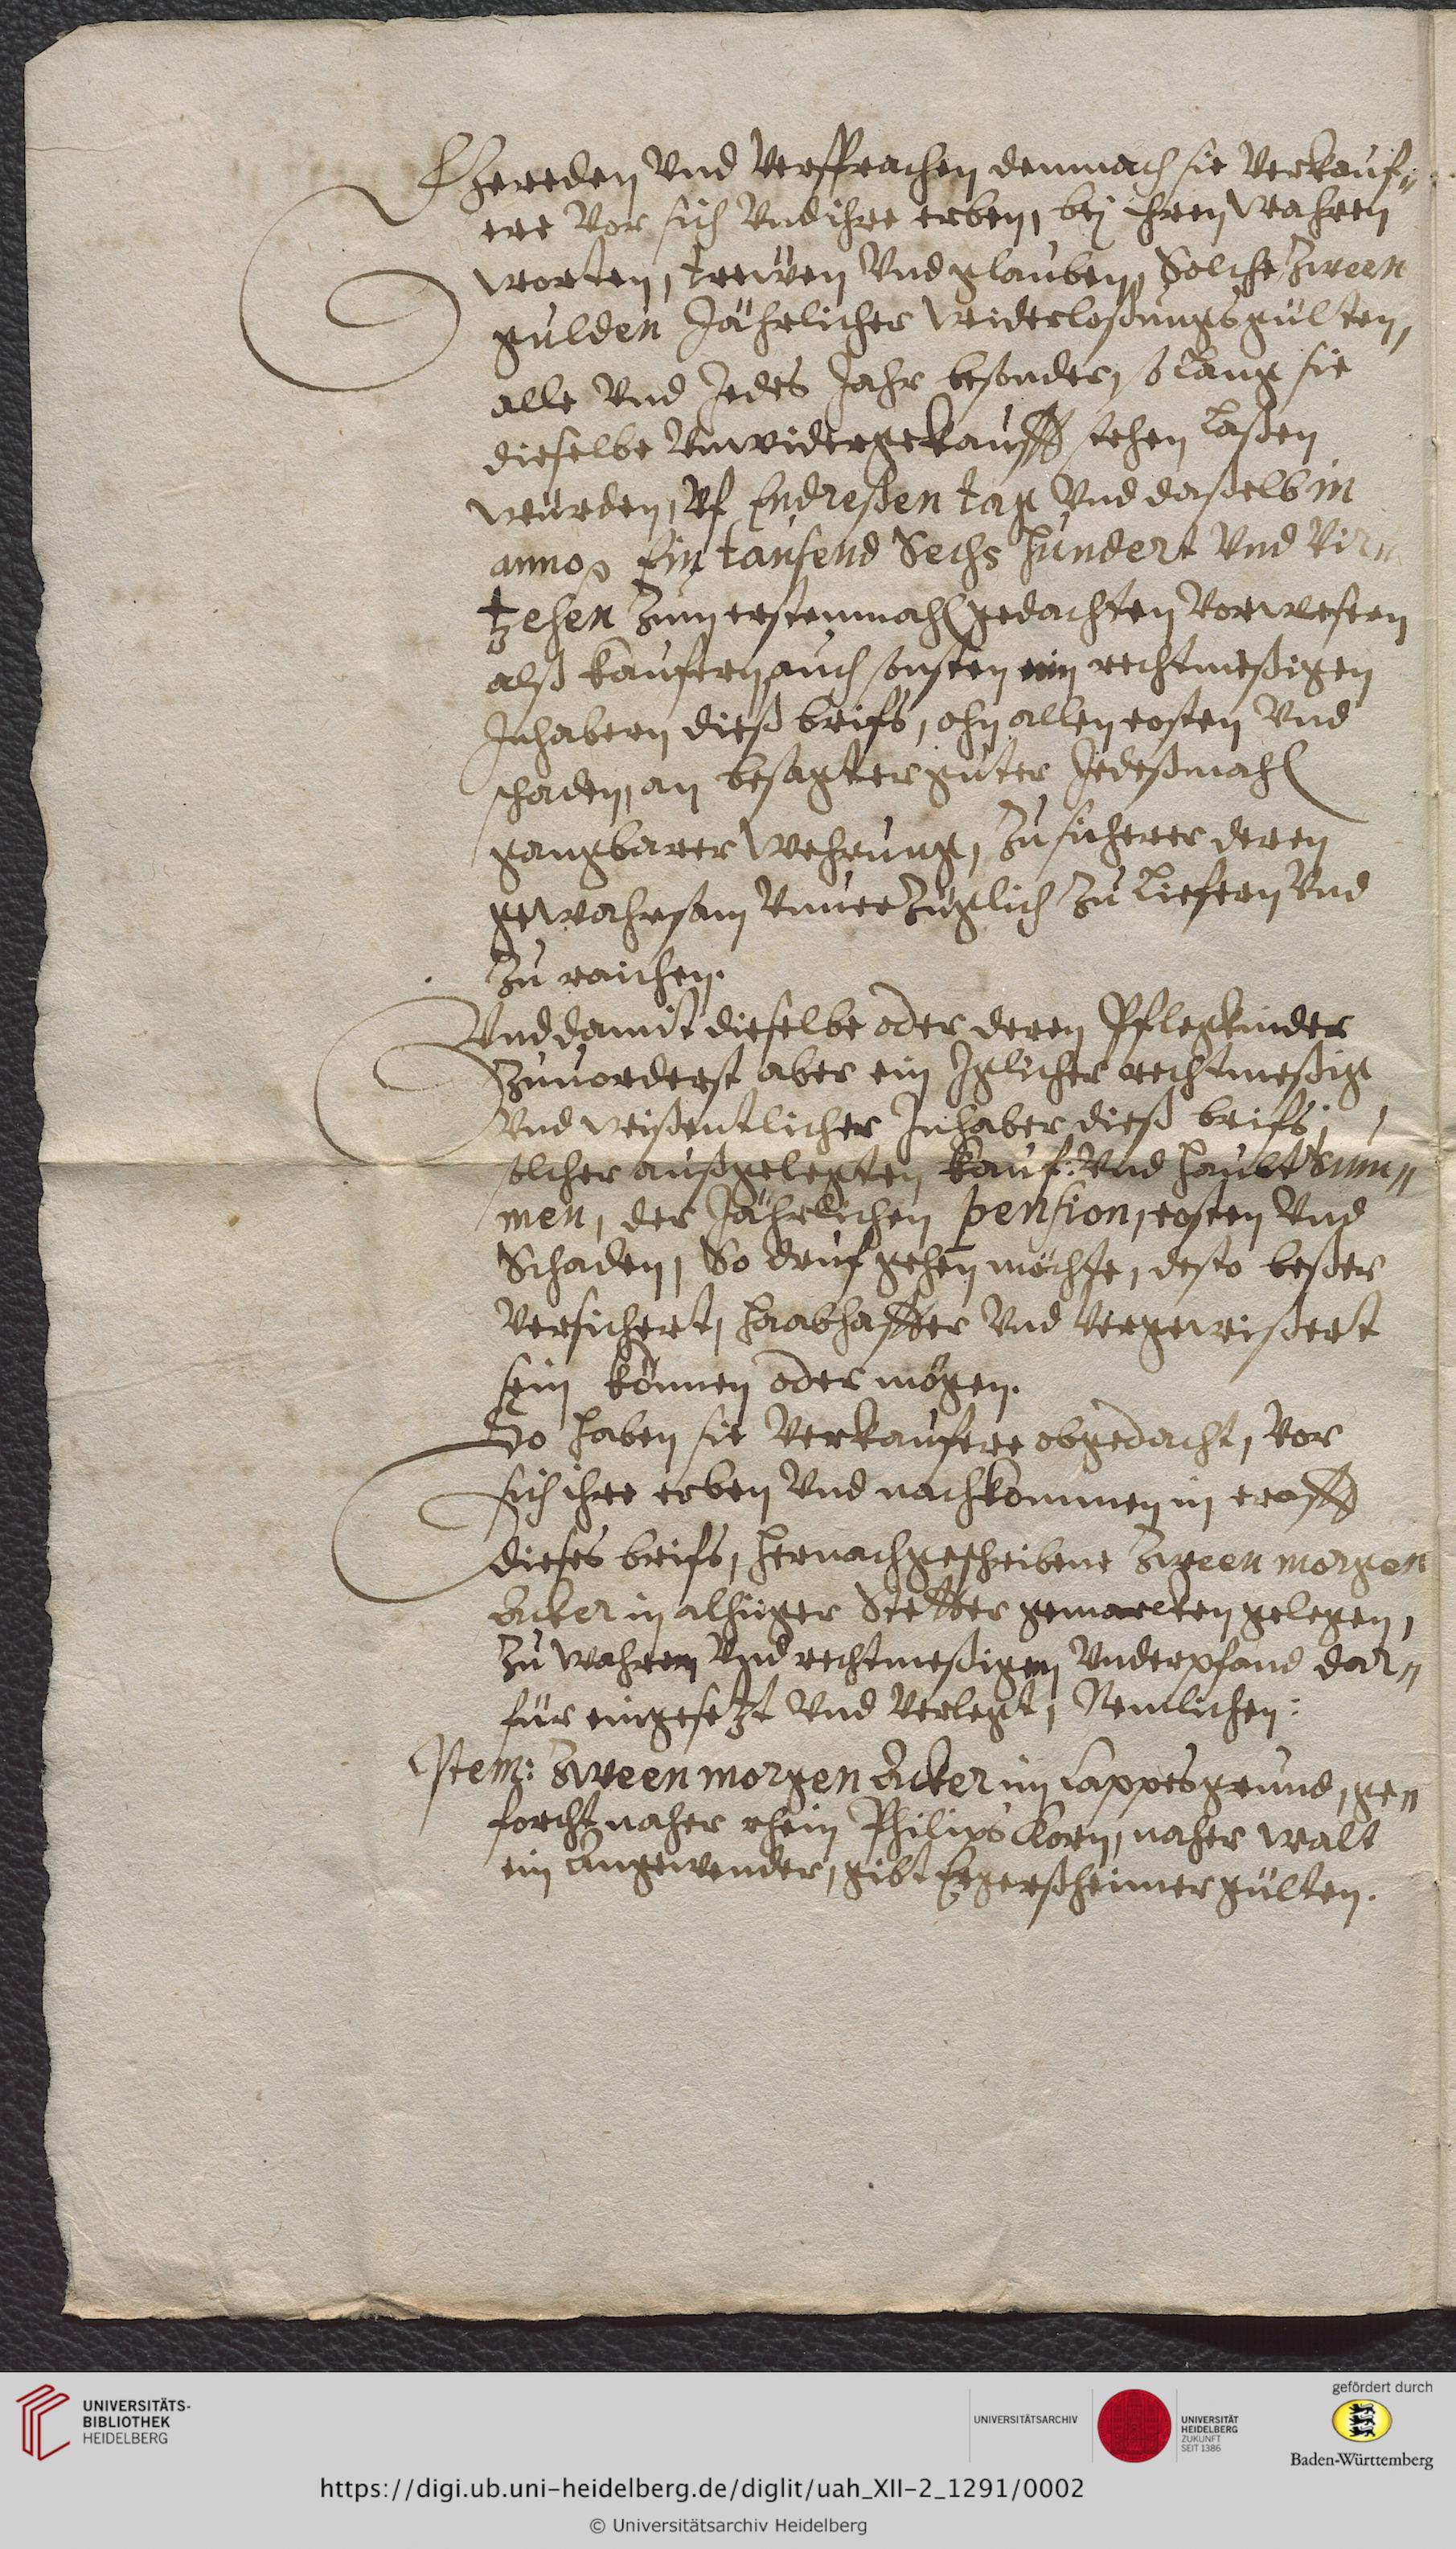 Gereden Vnd Versprachen demnach sie Verkauf„
ere Vor sich Vnd ihre erben, bej ihren wahren
worten, trewen Vnd glauben, Solche Zween
gulden Jährlicher widerloßungsgülten,
alle Vnd Jedes Jahr besonder, so lang sie
dieselbe Vnwidergekaufft stehen laßen
würden, Vf Endreßen tag Vnd daßelb in
anno Ein tausend Sechs hundert Vnd Vir„
tzehen Zum erstenmahl gedachten Vorwesern
alß kauffern, auch sonsten ein rechtmeßigen
Jnhabern dieß briefs, ohn allen costen Vnd
schaden, an besagter guter Jedeßmahl
gangbarer Wehrung, Zu sicherer deren
gewahrsam Vnuerzüglich Zu liefern Vnd
Zu raichen.
Vnd damit dieselbe oder deren Pflegkinder
Zuuorderst aber ein Jglicher rechtmeßig
Vnd wißentlicher Jnhaber dieß briefs,
solcher außgelegten Kauf: Vnd haubt Sum„
men, der Jährlichen pension, costen Vnd
Schaden, So druf gehen möchte, desto beßer
Versichert, habhaffter Vnd Vergewißert
sein können oder mögen.
So haben sie Verkauffere obgedacht, Vor
sich ihre erben Vnd nachkommen in crafft
dieses briefs, hernachgeschribene Zween morgen
Acker in alhiger Stetter gemarcken gelegen,
Zu wahren Vnd rechtmeßigen Vnderpfand dar„
für eingesetzt Vnd Verlegt, Nemlichen:
Item: Zween morgen Acker im Lappesgrund, ge„
forcht naher rhein Philips Korn, naher walt
ein Angewender, gibt Egerßheimer gülten.
UNIVERSITÄTS-
BIBLIOTHEK
HEIDELBERG
UNIVERSITÄTSARCHIV
UNIVERSITÄT
HEIDELBERG
ZUKUNFT
SEIT 1386
gefördert durch
Baden-Württemberg
https://digi.ub.uni-heidelberg.de/diglit/uah_XII-2_1291/0002
© Universitätsarchiv Heidelberg